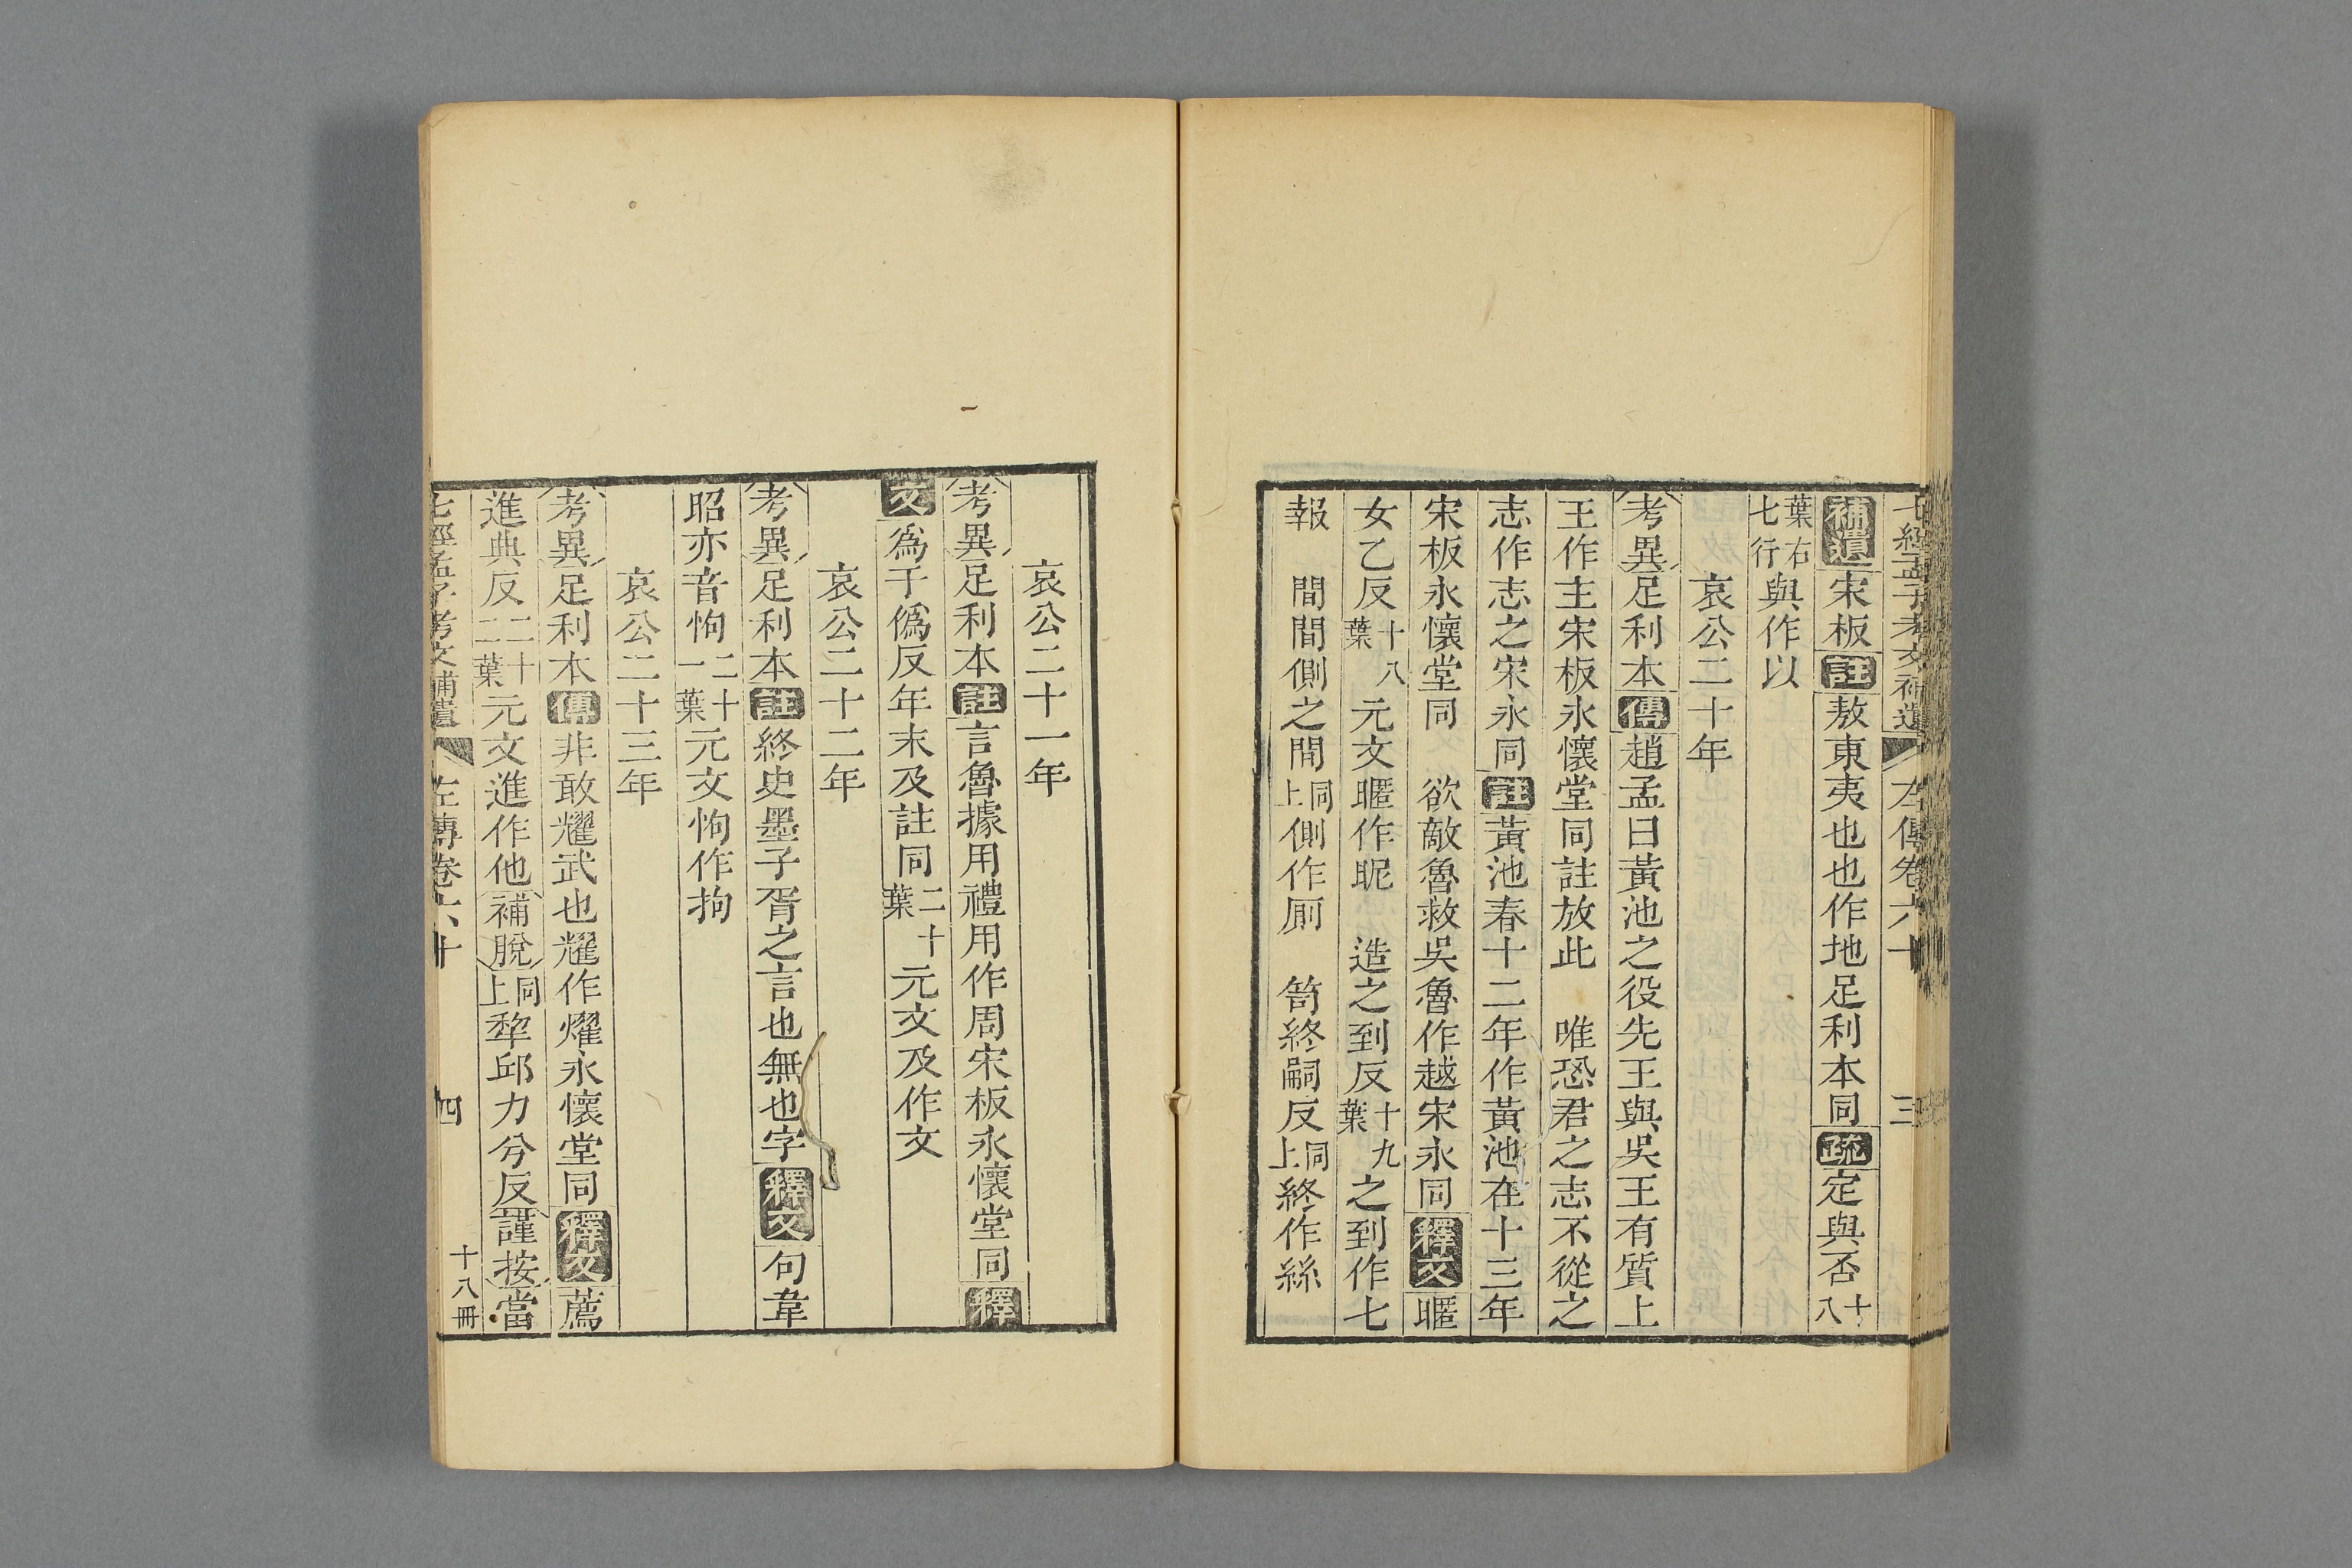 七經孟子考文補遺 左傳卷六十 三
補遺宋板註敖東夷也也作地足利本同疏定與否十八
葉右七行與作以
哀公二十年
考異足利本傳趙孟曰黃池之役先王與吳王有質上
王作主宋板永懷堂同註放此 唯恐君之志不從之
志作志之宋永同註黃池春十二年作黃池在十三年
宋板永懷堂同 欲敵魯救吳魯作越宋永同釋文暱
女乙反十八葉元文暱作昵 造之到反十九葉之到作七
報 間間側之間同上側作厠 笥終嗣反同上終作絲
哀公二十一年
考異足利本註言魯據用禮用作周宋板永懷堂同釋
文為于僞反年末及註同二十葉元文及作文
哀公二十二年
考異足利本註終史墨子胥之言也無也字釋文句韋
昭亦音怐二十一葉元文怐作拘
哀公二十三年
考異足利本傳非敢耀武也耀作燿永懷堂同釋文薦
進典反二十二葉元文進作他補脫同上犂邱力兮反謹按當
七經孟子考文補遺 左傳卷六十 四 十八冊